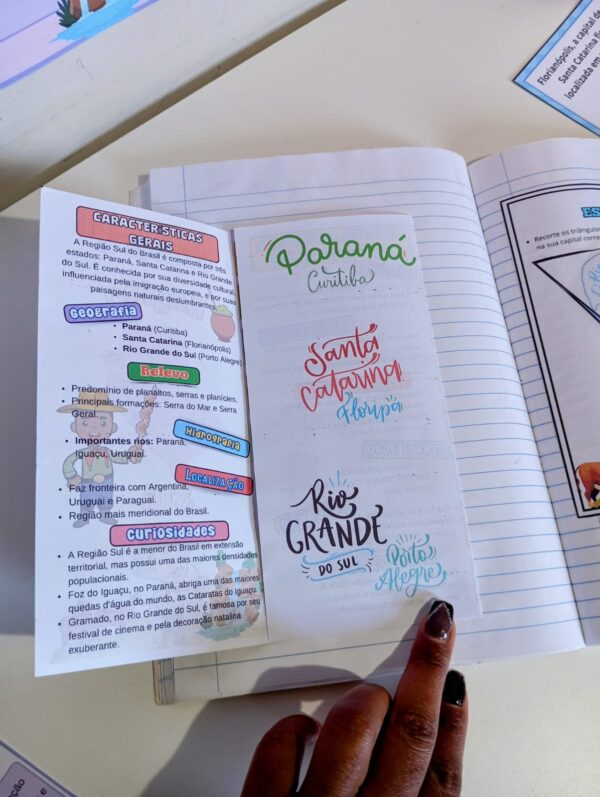 CARACTERÍSTICAS
GERAIS
A Região Sul do Brasil é composta por três
estados: Paraná, Santa Catarina e Rio Grande
do Sul. É conhecida por sua diversidade cultural,
influenciada pela imigração europeia, e por suas
paisagens naturais deslumbrantes.
Geografia
• Paraná (Curitiba)
• Santa Catarina (Florianópolis)
• Rio Grande do Sul (Porto Alegre)
Relevo
• Predomínio de planaltos, serras e planícies.
• Principais formações: Serra do Mar e Serra
Geral.
Hidrografia
• Importantes rios: Paraná,
Iguaçu, Uruguai.
LOCALIZAÇÃO
• Faz fronteira com Argentina,
Uruguai e Paraguai.
• Região mais meridional do Brasil.
Curiosidades
• A Região Sul é a menor do Brasil em extensão
territorial, mas possui uma das maiores densidades
populacionais.
• Foz do Iguaçu, no Paraná, abriga uma das maiores
quedas d'água do mundo, as Cataratas do Iguaçu.
• Gramado, no Rio Grande do Sul, é famosa por seu
festival de cinema e pela decoração natalina
exuberante.
Paraná
Curitiba
Santa
Catarina
Floripa
Rio
GRANDE
DO SUL
Porto
Alegre
Florianópolis, a capital de
Santa Catarina
localizada em
ES
• Recorte os triângulos
na sua capital